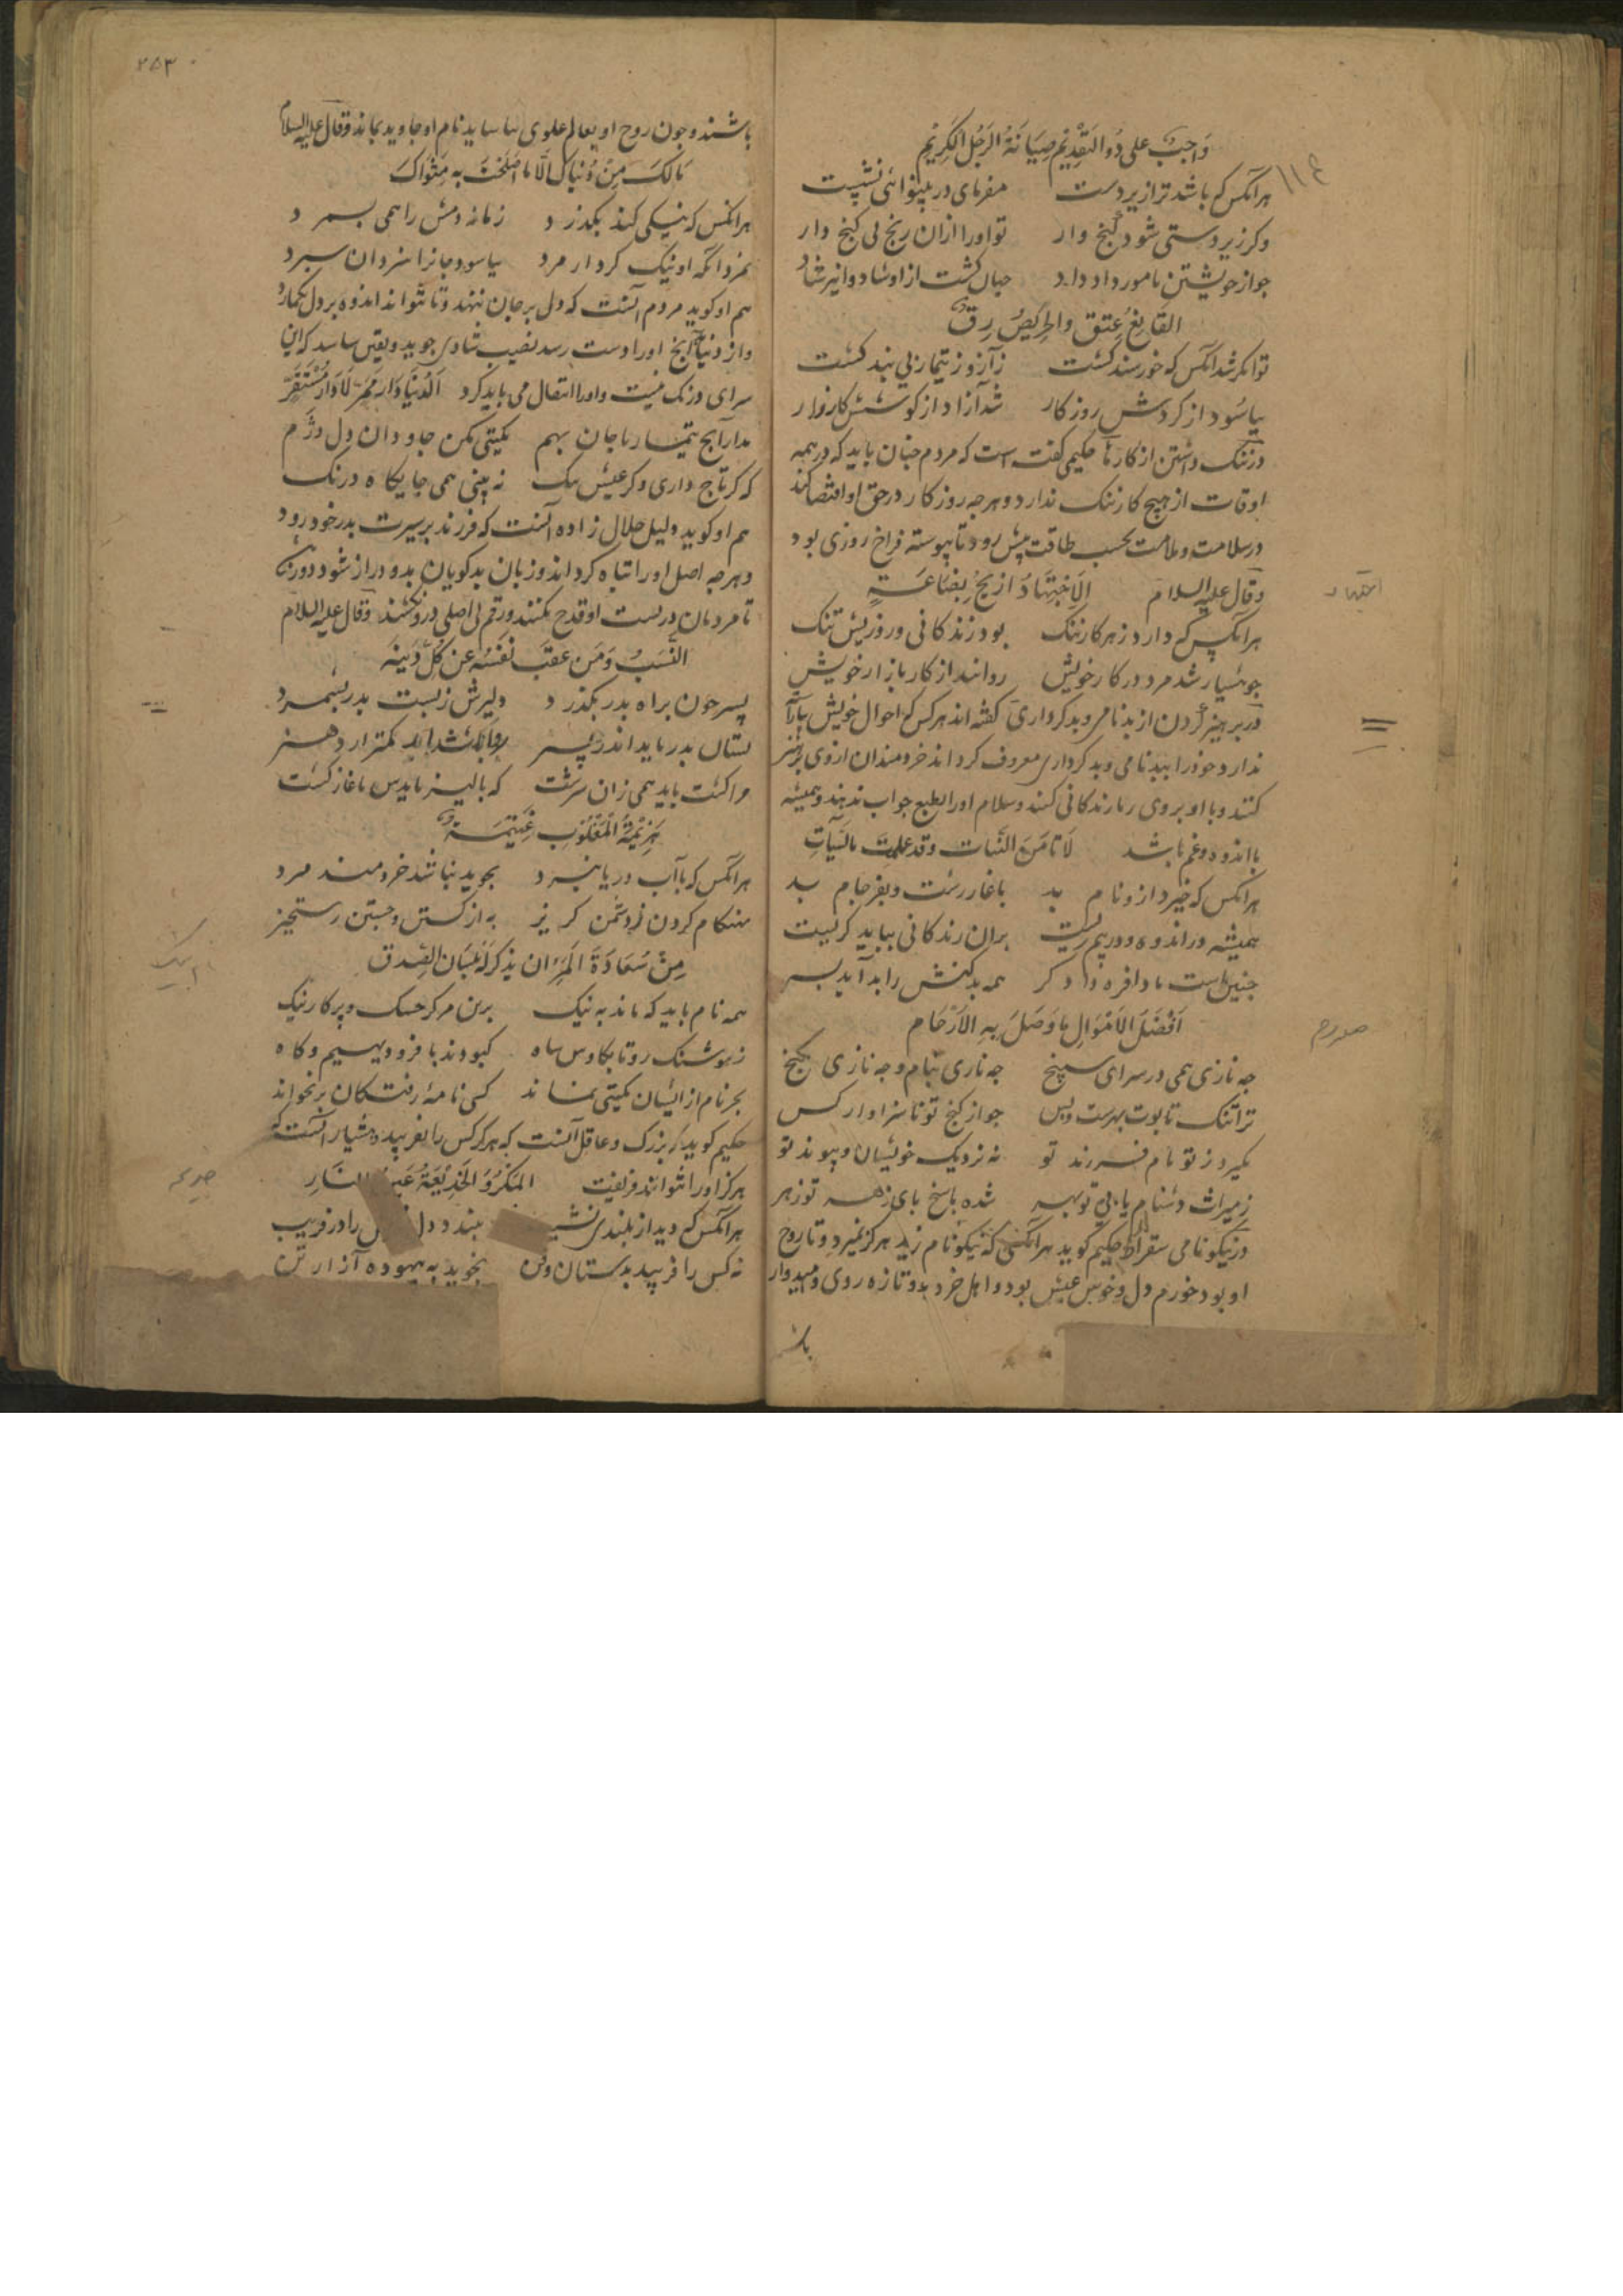 وَاجِبٌ عَلى ذُو التَقْدِيْمِ صِيَانَةُ الرَجُلِ الكَرِيْمِ
هر آنکس که باشد ترا زیردست مفرمای در بینوائی نشست
وکر زیردستی شود کنج دار تو او را ازان رنج بی کنج دار
جو از خویشتن نامور داد داد جهان کشت از او شاد و او نیز شاد
القَانِعُ عِتِق والحَرِيصُ رِق
توانکر شد آنکس که خورسند کشت ز آز و ز تیمار بی بند کشت
بیاسود از کردش روزکار شد آزاد از کوشش کارزار
در ننک داشتن از کارها حکیمی کفته است که مردم جنان باید که در همه
اوقات از هیج کار ننک ندارد و هر جه روزکار در حق او اقتضا کند
در سلامت و ملامت بحسب طاقت پیش رود تا پیوسته فراخ روزی بود
وقال علیه السلام الاِجْتِهَادُ اَرْبَحُ بِضَاعَةٍ
هر آنکس که دارد ز هر کار ننک بود زندکانی و روزیش تنک
جو هشیار شد مرد در کار خویش رواند از کار بازار خویش
در پرهیز کردن از بدنامی و بدکرداری کفته اند هر کس که احوال خویش
ندارد و خود را ببدنامی و بدکرداری معروف کرداند خردمندان از وی پرهیز
کنند و با او بروی ریا زندکانی کنند و سلام او را بطبع جواب ندهند و همیشه
با اندوه و غم باشد لَا تَامَنَ البَیَات وقد عملت بالسیّآتِ
هر آنکس که خیزد ازو نام بد باغاز زشت و بفرجام بد
همیشه در اندوه و در بیم زیست بران زندکانی بباید کریست
جنین است بادافره دادکر همه بدکنش را بد آید بسر
اَفْضَلُ الاَمْوَالِ مَا وَصَلَ بِهِ الاَرْحَام
جه نازی همی در سرای سپنج جه نازی بنام و جه نازی بکنج
ترا تنک تابوت بهرست و بس جو از کنج تو ناسزاوار کس
نکیرد ز تو نام فرزند تو نه نزدیک خویشان و پیوند تو
ز میراث دشنام یابی تو بهر شده پاسخ پای زهر تو زهر
در نیکونامی سقراط حکیم کوید هر آنکس که نیکونام زید هرکز نمیرد و تا روح
او بود خورم دل و خوش عیش بود و اهل خرد بدو تازه روی و امیدوار
باشـ
اجتهاد
صله رحم
۲۵۳
باشند و جون روح او بعالم علوی بیاساید نام او جاوید بماند وقال علیه السلام
مَالَکَ مِنْ دُنْیَاکَ اِلّا مَا اَصْلَحْتَ بِهِ مَثْوَاکَ
هر آنکس که نیکی کند بکذرد زمانه دمش را همی بسمرد
بمرد آنکه او نیک کردار مرد بیاسود و جانرا بیزدان سپرد
هم او کوید مردم آنست که دل بر جهان ننهد و تا تواند اندوه بر دل نکمارد
و از دنیا آنج او را دست رسد نصیب شادی جوید و یقین شناسد که این
سرای درنک نیست و او را انتقال می باید کرد اَلدُنْیَا دَارُ مَمَرّ لَا دَارُ مُسْتَقَرّ
مدار آنج تیمار با جان بهم بکیتی مکن جاودان دل دژم
که کر تاج داری و کر عیش تنک نه بینی همی جایکاه درنک
هم او کوید دلیل حلال زاده آنست که فرزند بر سیرت پدر خود رود
و هرجه اصل او را تباه کرداند و زبان بدکویان بدو دراز شود دور
تا مردمان در نسبت او قدح نکنند و رقم بی اصلی درو نکشند وقال علیه السلام
پسر جون براه پدر بکذرد دلیرش ز پشت پدر بشمرد
نشان پدر باید اندر پسر روا باشد ار کمتر آرد هنر
هَزِیْمَةُ المَغْلُوبِ غَنِیْمَة
هر آنکس که با آب دریا نبرد بجوید نباشد خردمند مرد
بهنکام کردن ز دشمن کریز به از کشتن و جستن رستخیز
مِنْ سَعَادَةِ المَرءِ ان یذکر بِلِسَان الصِّدق
همه نام باید که ماند به نیک
ز هوشنک رو تا بکاوس شاه که بودند با فر و دیهیم و کاه
بجز نام از ایشان بکیتی نماند کسی نامهٔ رفتکان برنخواند
حکیم کوید که بزرک و عاقل آنست که هرکز کس را نفریبد و هشیار آنست که
هرکز او را نتوانند فریفت المَکْرُ وَ الخَدِیْعَةُ النَّارِ
هر آنکس که دید از بلندی نشیب نبندد دل را در فریب
نه کس را فریبد بدستان و فن بجوید به بیهوده آزار تن